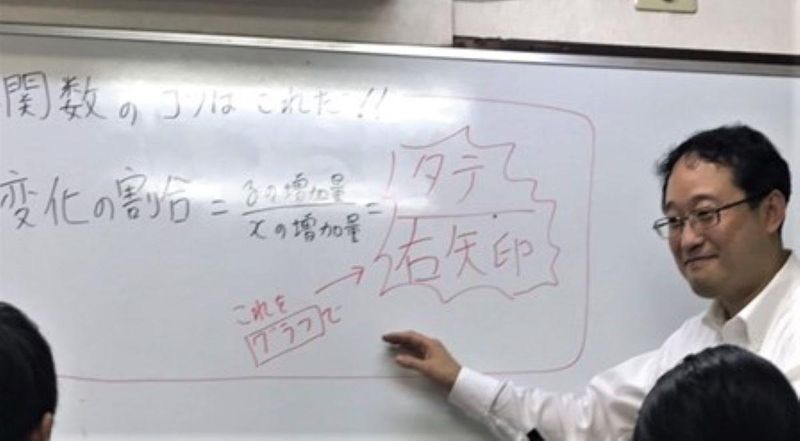 関数のコツはこれだ!!
変化の割合 = yの増加量 / xの増加量 = タテ / 右矢印
これを
グラフで